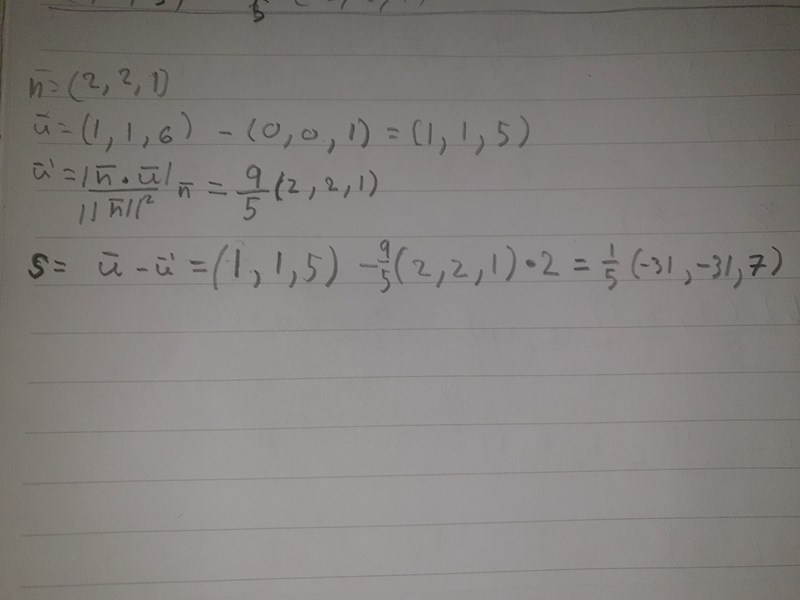 n̄ = (2, 2, 1)
ū = (1, 1, 6) - (0, 0, 1) = (1, 1, 5)
ū' = |n̄ • ū| / ||n̄||² n̄ = 9/5 (2, 2, 1)
S = ū - ū' = (1, 1, 5) - 9/5 (2, 2, 1) • 2 = 1/5 (-31, -31, 7)